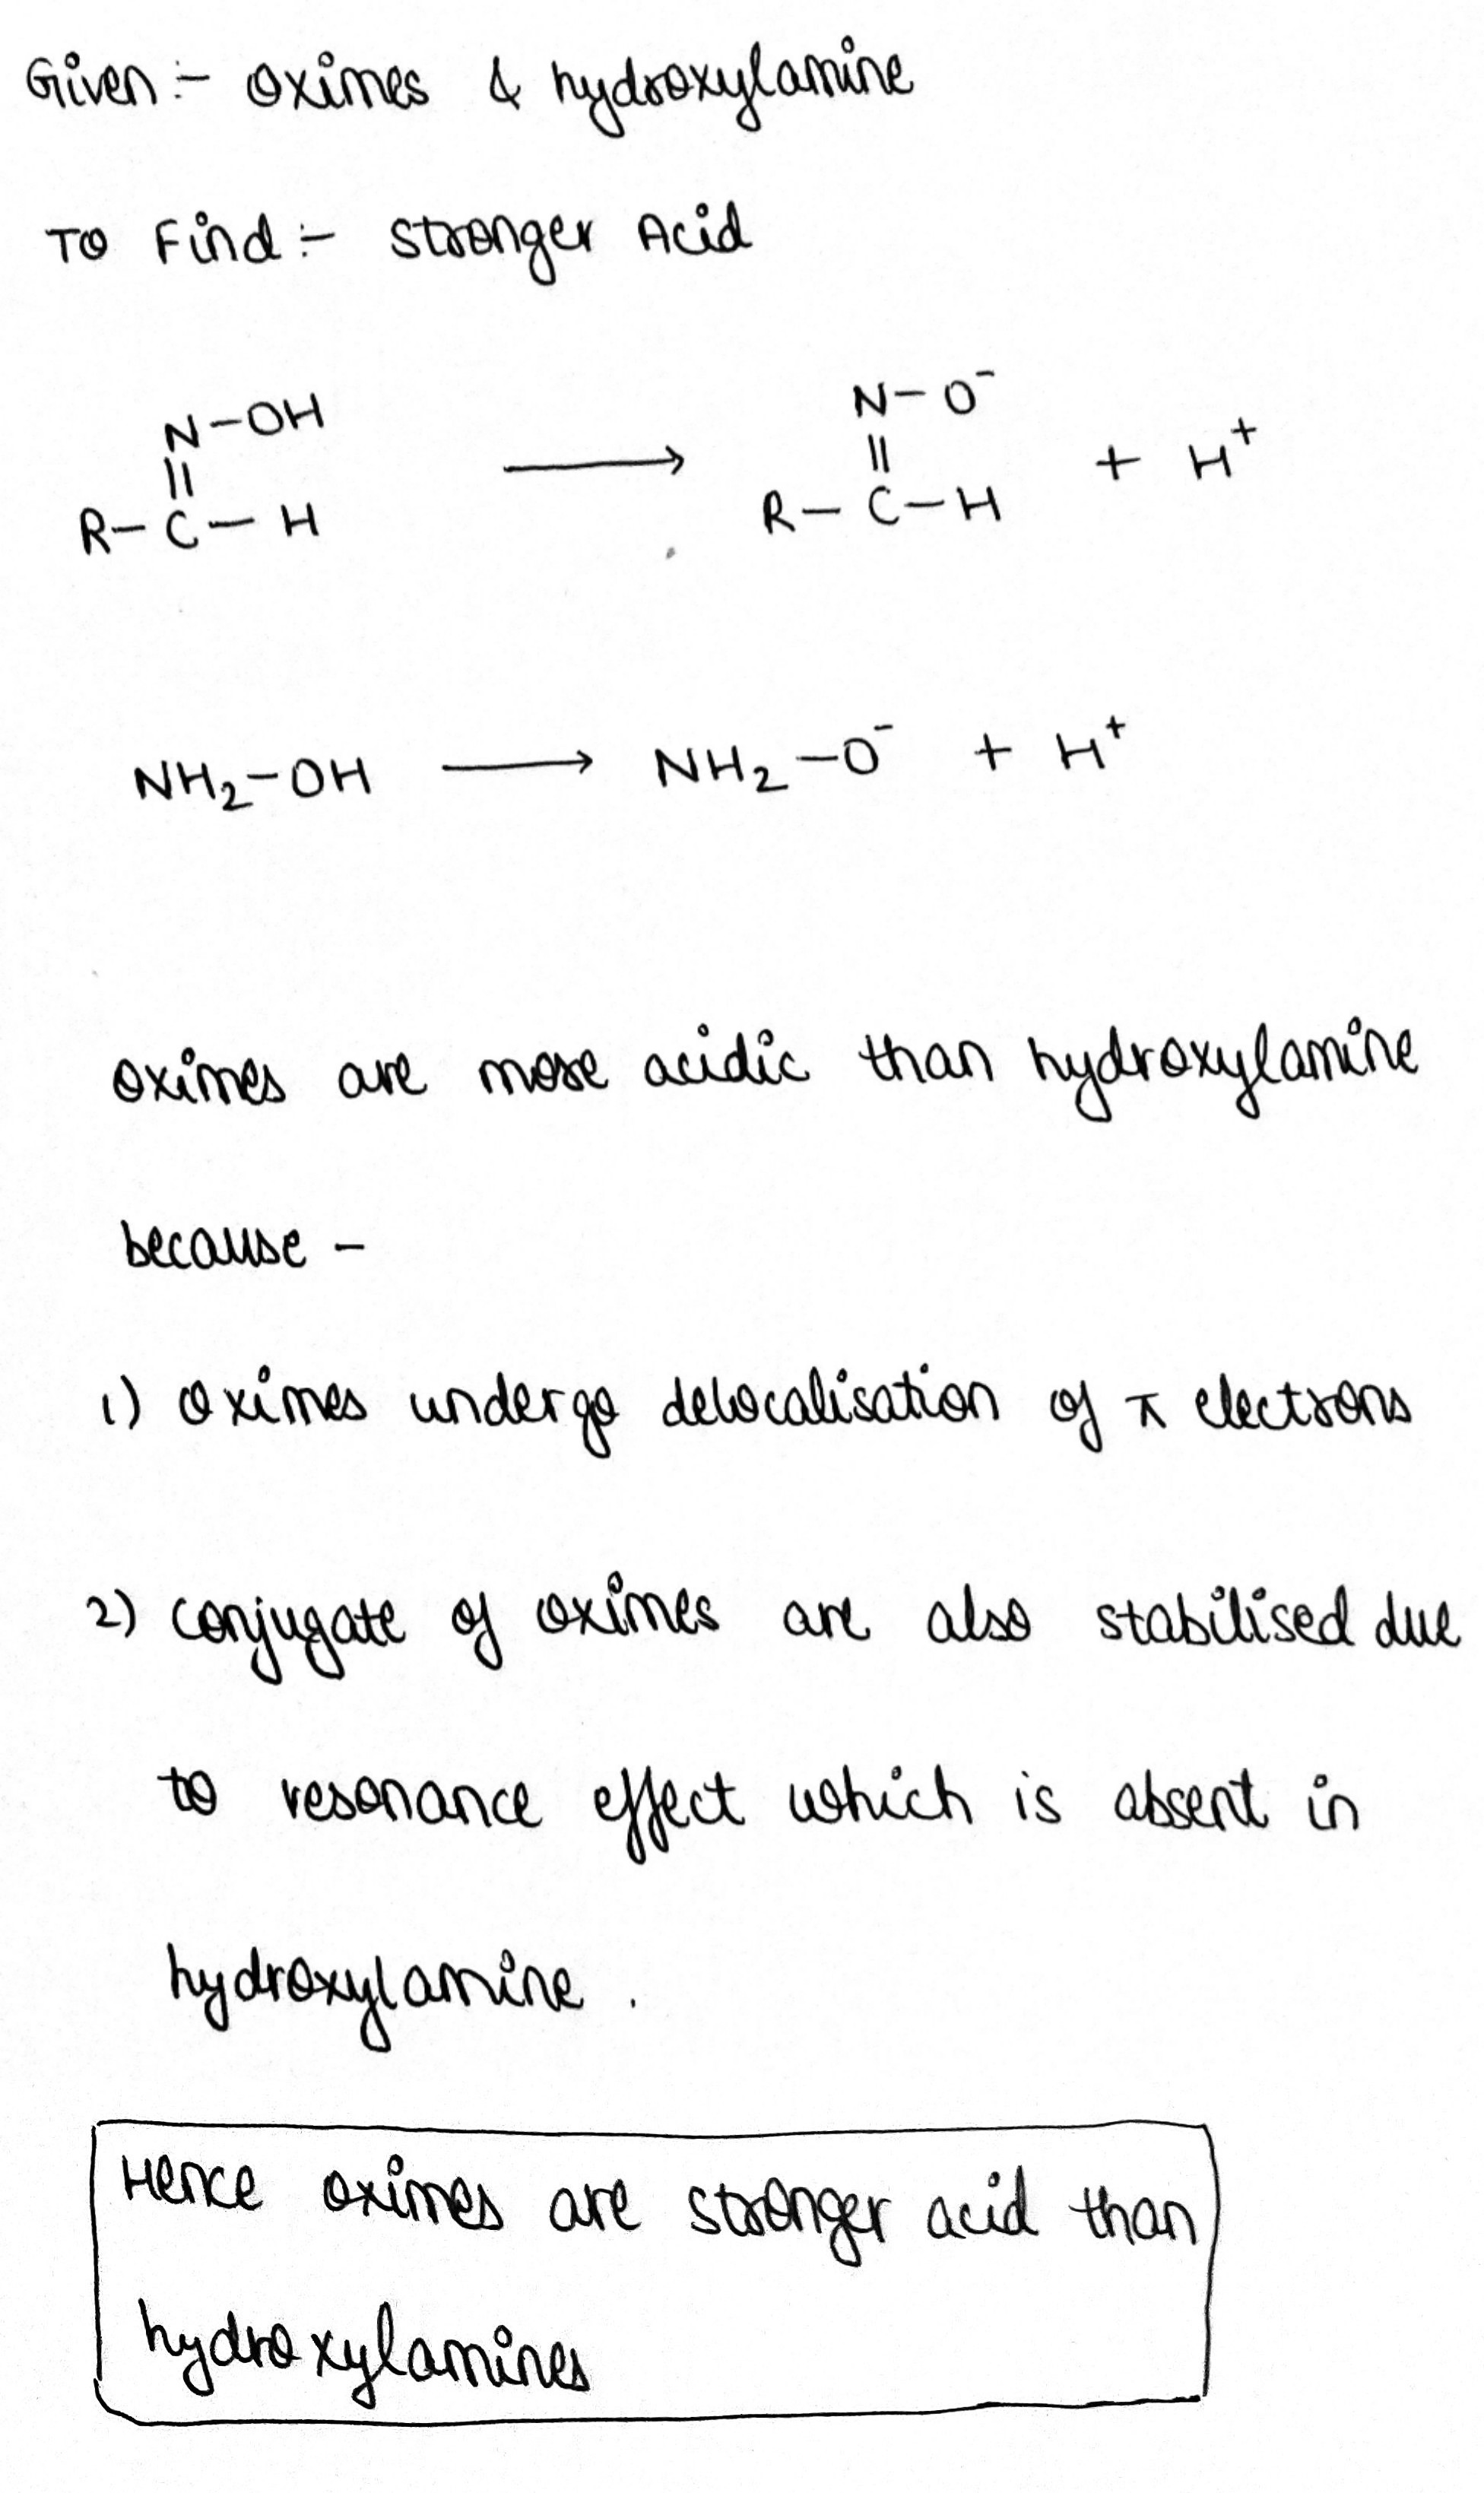 Given:- Oximes & hydroxylamine
To Find:- Stronger Acid
N-OH
||
R-C-H
⟶
N-O⁻
||
R-C-H
+ H⁺
NH₂-OH ⟶ NH₂-O⁻ + H⁺
oximes are more acidic than hydroxylamine
because -
1) Oximes undergo delocalisation of π electrons
2) conjugate of oximes are also stabilised due
to resonance effect which is absent in
hydroxylamine.
Hence oximes are stronger acid than
hydroxylamines